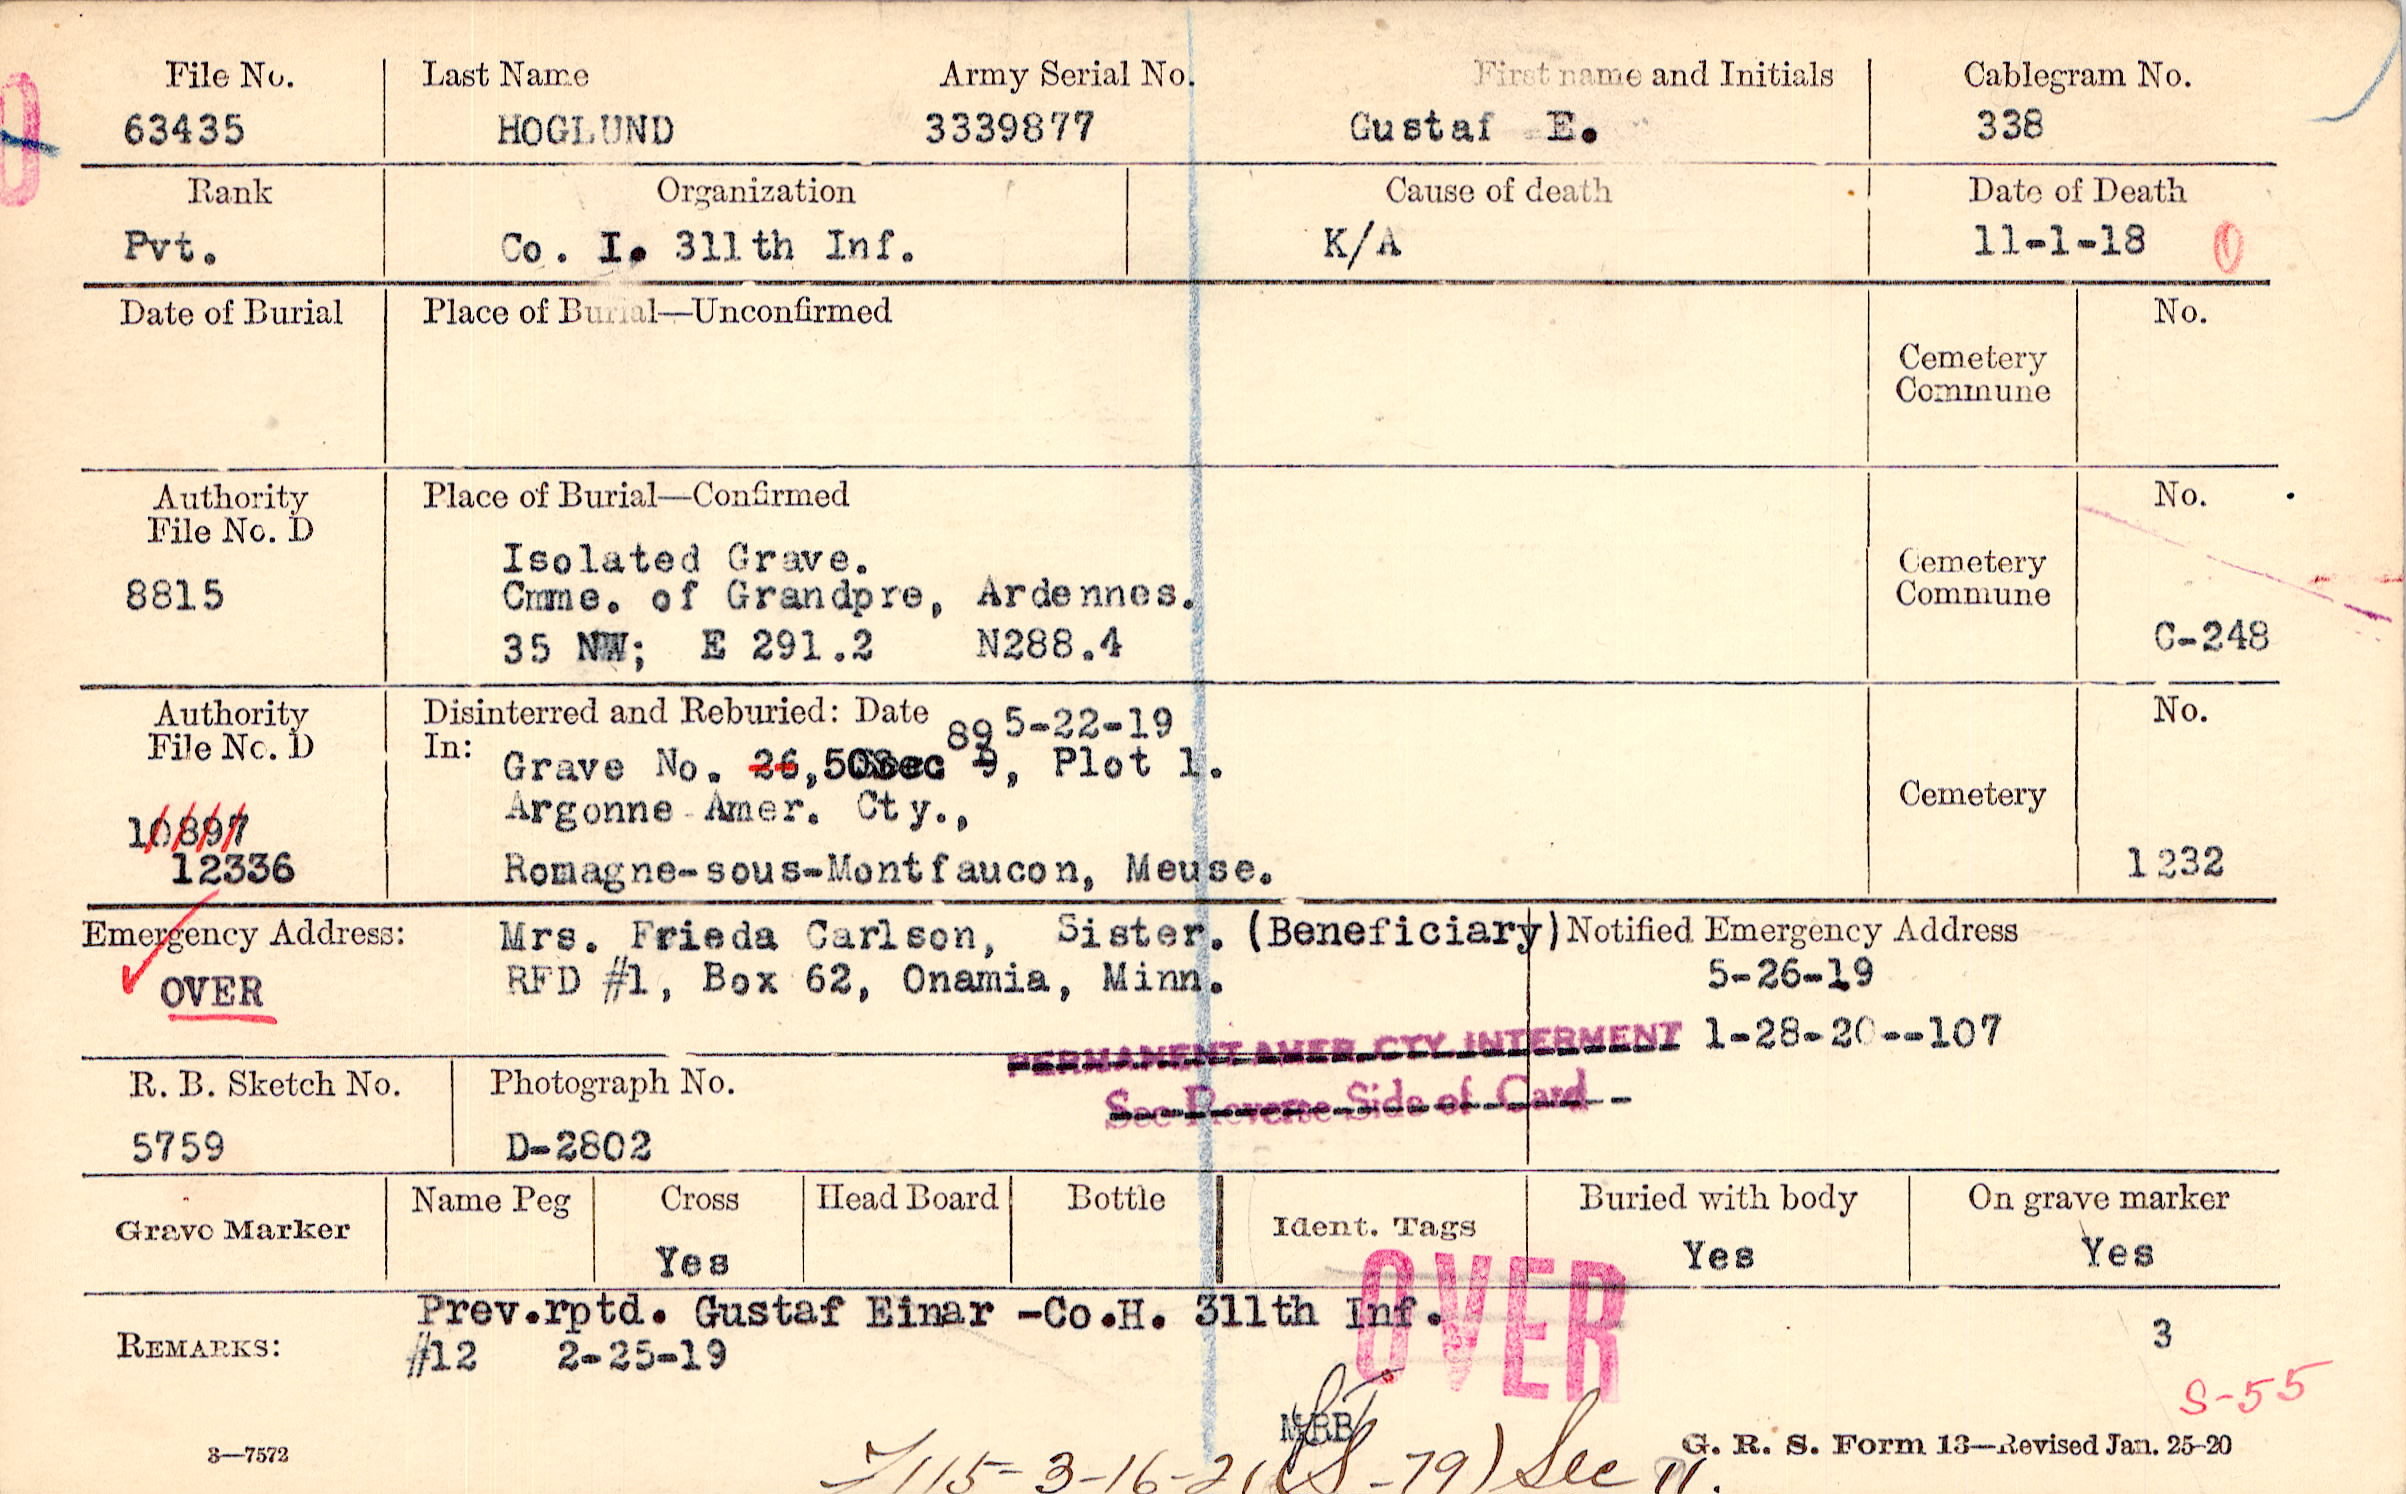 File No. Last Name Army Serial No. First name and Initials Cablegram No.
63435 HOGLUND 3339877 Gustaf E. 338
Rank Organization Cause of death Date of Death
Pvt. Co. I. 311th Inf. K/A 11-1-18 0
Date of Burial Place of Burial—Unconfirmed No.
Cemetery
Commune
Authority Place of Burial—Confirmed No.
File No. D
Isolated Grave. Cemetery
8815 Cmme. of Grandpre, Ardennes. Commune
35 NW; E 291.2 N288.4 C-248
Authority Disinterred and Reburied: Date 5-22-19 No.
File No. D In: 89
Grave No. 26, 50 Sec 9, Plot 1.
Argonne Amer. Cty., Cemetery
10897
12336 Romagne-sous-Montfaucon, Meuse. 1232
Emergency Address: Mrs. Frieda Carlson, Sister. (Beneficiary) Notified Emergency Address
OVER RFD #1, Box 62, Onamia, Minn. 5-26-19
PERMANENT AMER. CTY. INTERMENT 1-28-20--107
See Reverse Side of Card
R. B. Sketch No. Photograph No.
5759 D-2802
Grave Marker Name Peg Cross Head Board Bottle Ident. Tags Buried with body On grave marker
Yes Yes Yes
OVER
Prev.rptd. Gustaf Einar -Co.H. 311th Inf.
REMARKS: #12 2-25-19 3
S-55
MRB
3—7572 G. R. S. Form 13—Revised Jan. 25-20
3-16-21 (S-79) Sec 11.